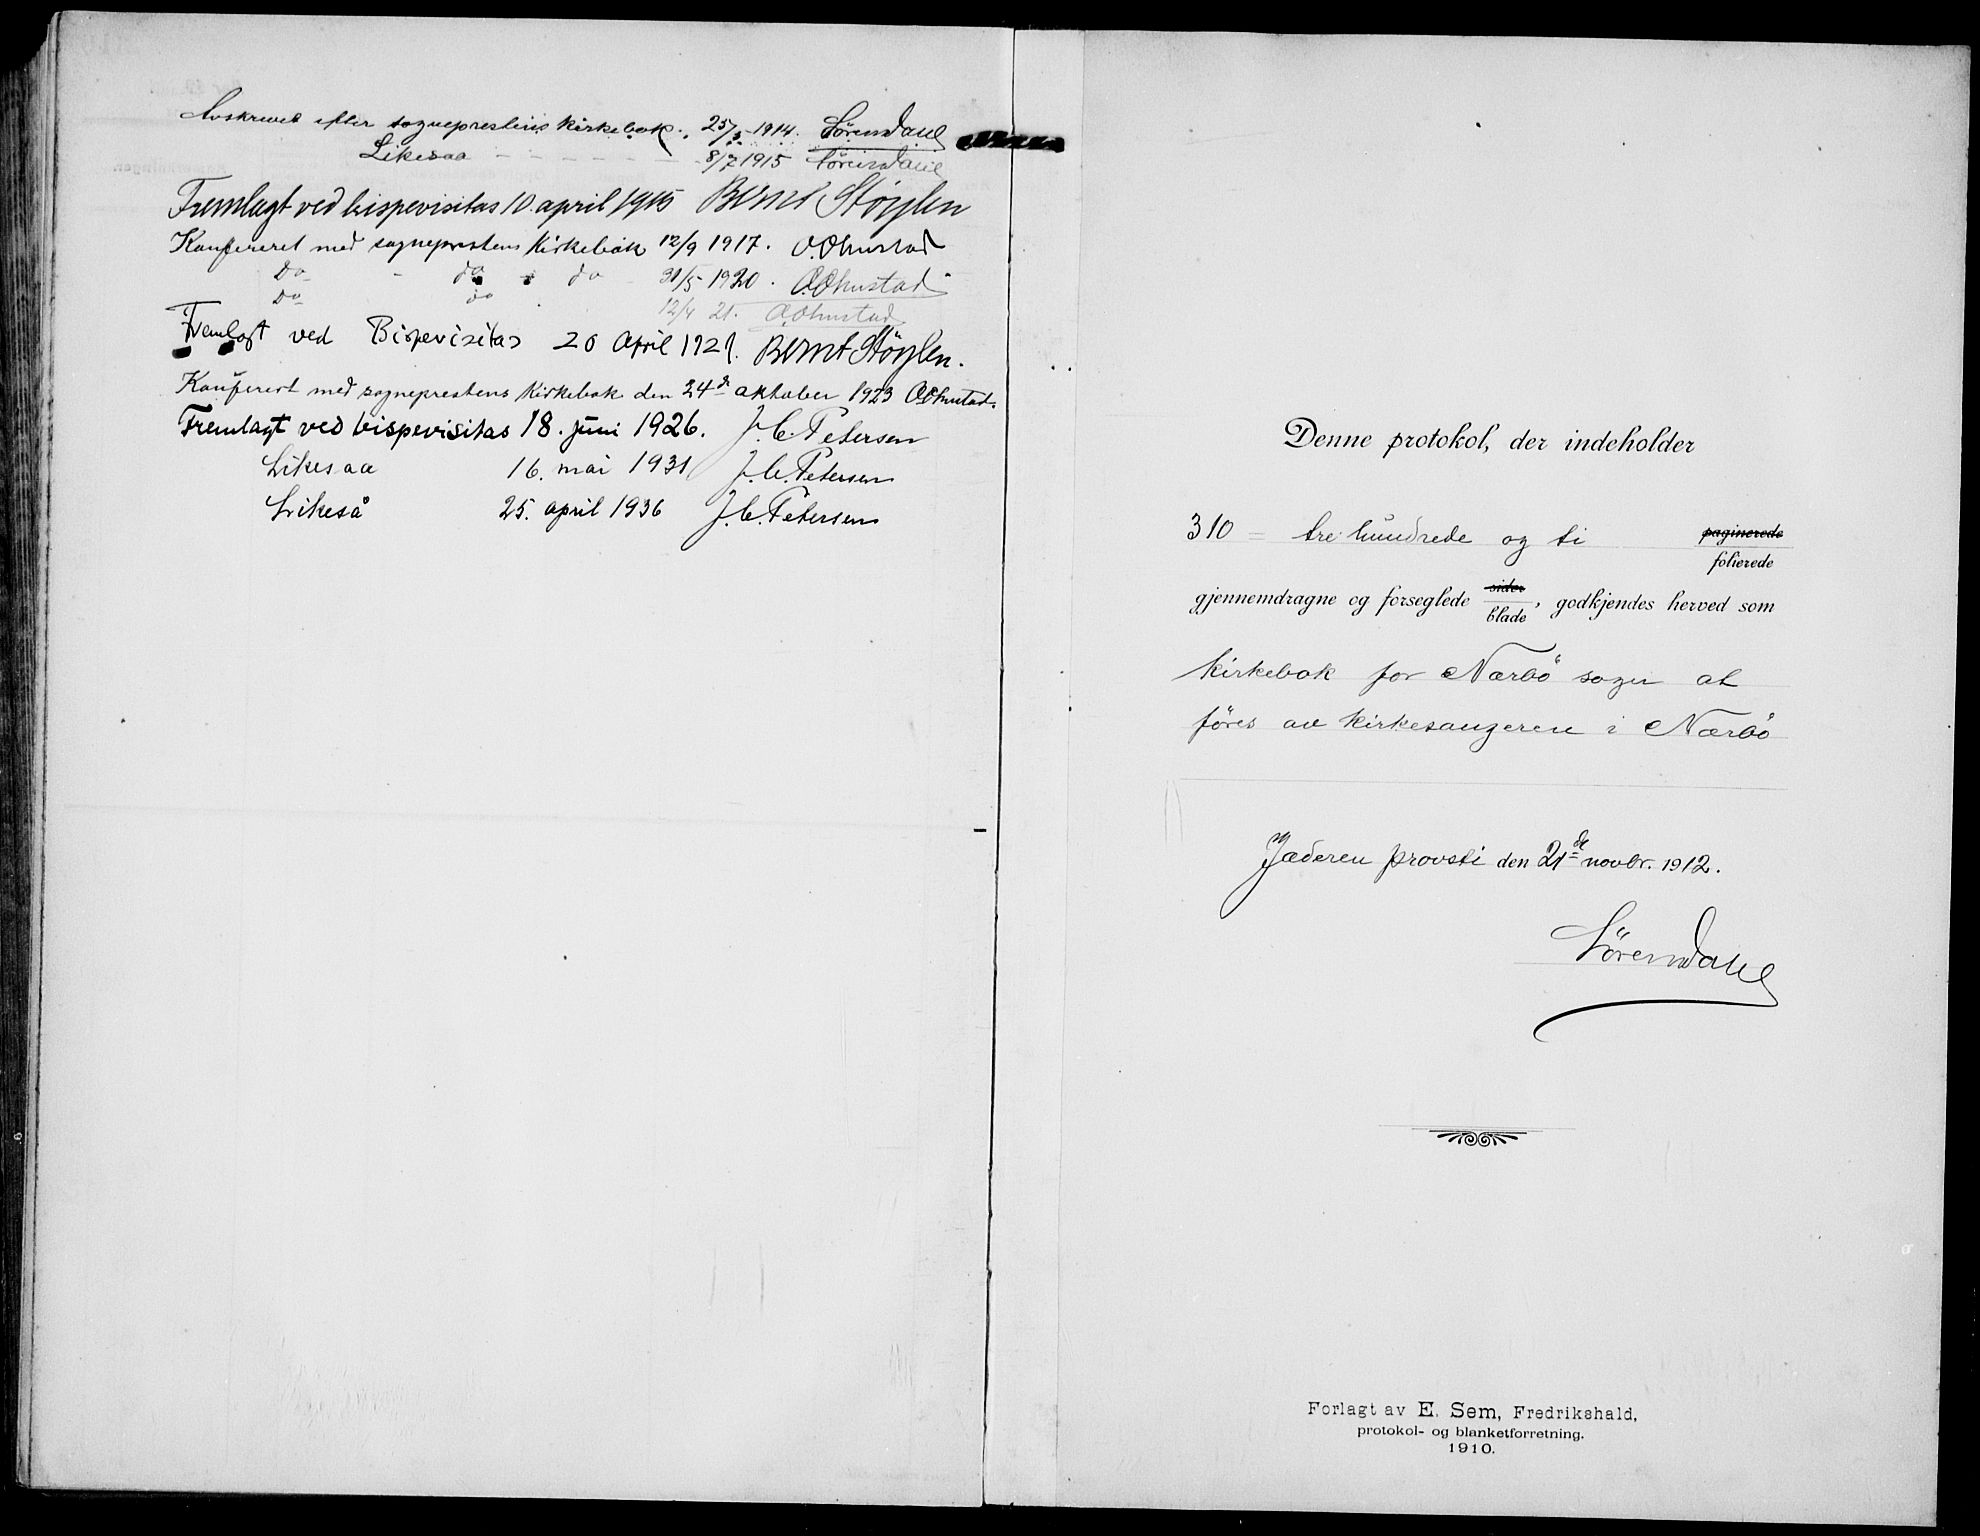 Avskrevet efter sogneprestens kirkebok. 25/3 1914. Sörensdahl
Likesaa - - - - - - 8/7 1915 Sörensdahl
Fremlagt ved bispevisitas 10. april 1915 Bernt Støylen
Konfereret med sogneprestens kirkebok 12/9 1917. O. Ohnstad
Do - do - do 31/5 1920. O. Ohnstad
Do do 12/4 21. O. Ohnstad
Fremlagt ved Bispevisitas 20 April 1921. Bernt Støylen.
Konferert med sogneprestens kirkebok den 24de oktober 1923 O. Ohnstad.
Fremlagt ved bispevisitas 18. juni 1926. J. C. Petersen
Likesaa 16. mai 1931 J. C. Petersen
Likeså 25. april 1936 J. C. Petersen
Denne protokol, der indeholder
310 = tre hundrede og ti paginerede
folierede
gjennemdragne og forseglede sider
blade, godkjendes herved som
kirkebok for Nærbö sogn at
föres av kirkesangeren i Nærbö
Jæderen provsti den 21de novbr. 1912.
Sörensdahl
Forlagt av E. Sem, Fredrikshald,
protokol- og blanketforretning.
1910.